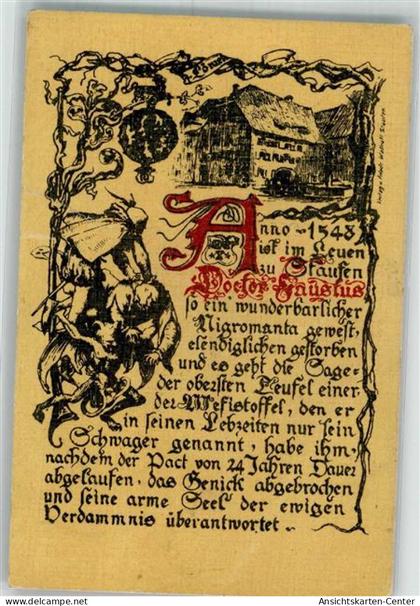 Anno 1548
ist im Leuen
zu Staufen
Doctor Faustus
so ein wunderbarlicher
Nigromanta gewest,
elendiglichen gestorben
und es geht die Sage
der obersten Teufel einer
der Mefistoffel, den er
in seinen Lebzeiten nur sein
Schwager genannt, habe ihm,
nachdem der Pact von 24 Jahren Dauer
abgelaufen, das Genick abgebrochen
und seine arme Seel der ewigen
Verdammnis überantwortet
Ansichtskarten-Center